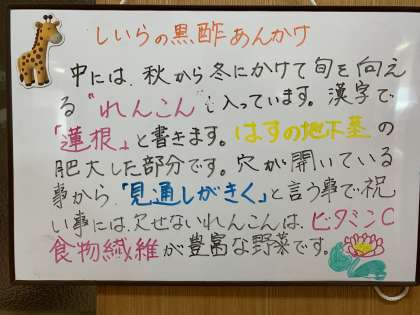 しいらの黒酢あんかけ
中には、秋から冬にかけて旬を向え
る"れんこん"も入っています。漢字で
「蓮根」と書きます。はすの地下茎の
肥大した部分です。穴が開いている
事から「見通しがきく」と言う事で祝
い事には、欠せないれんこんは、ビタミンC
食物繊維が豊富な野菜です。